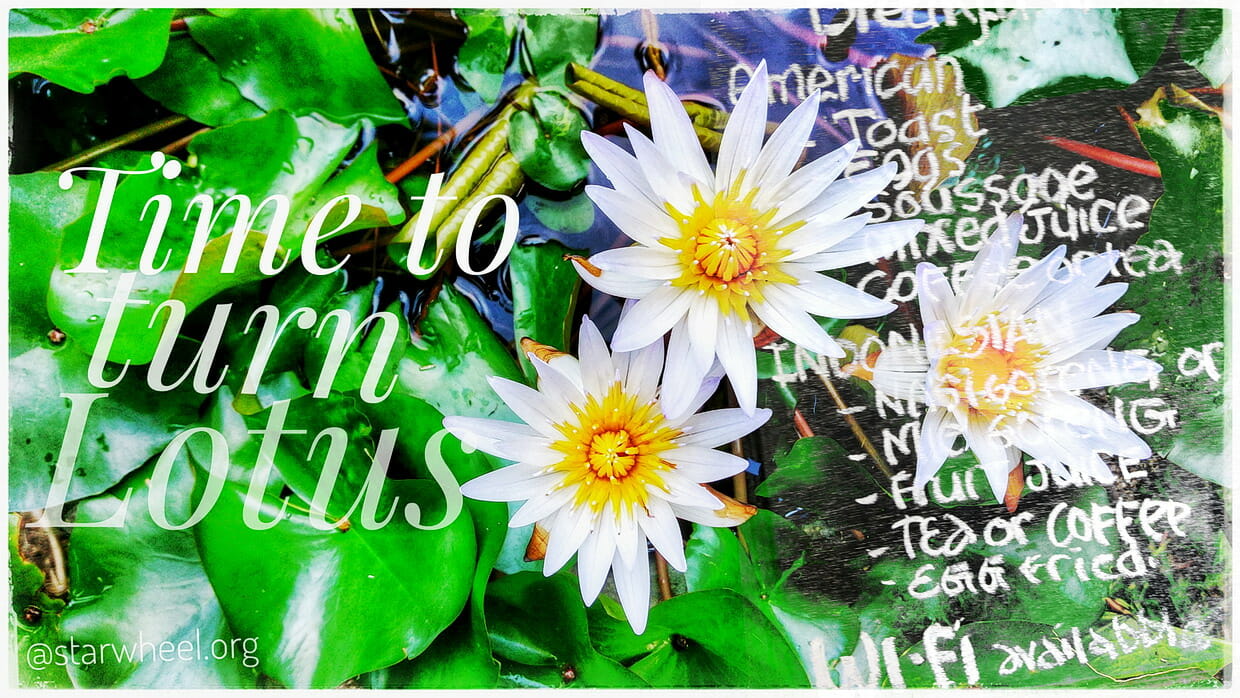 Time to
turn
Lotus
@starwheel.org
Breakfast
American
- Toast
Eggs
Soassage
Mixed Juice
Coffee or tea
INDONESIAN
- NASI GORENG or
- GORENG
- Fruit JUICE
- TEA or COFFEE
- EGG Fried.
WI-FI available